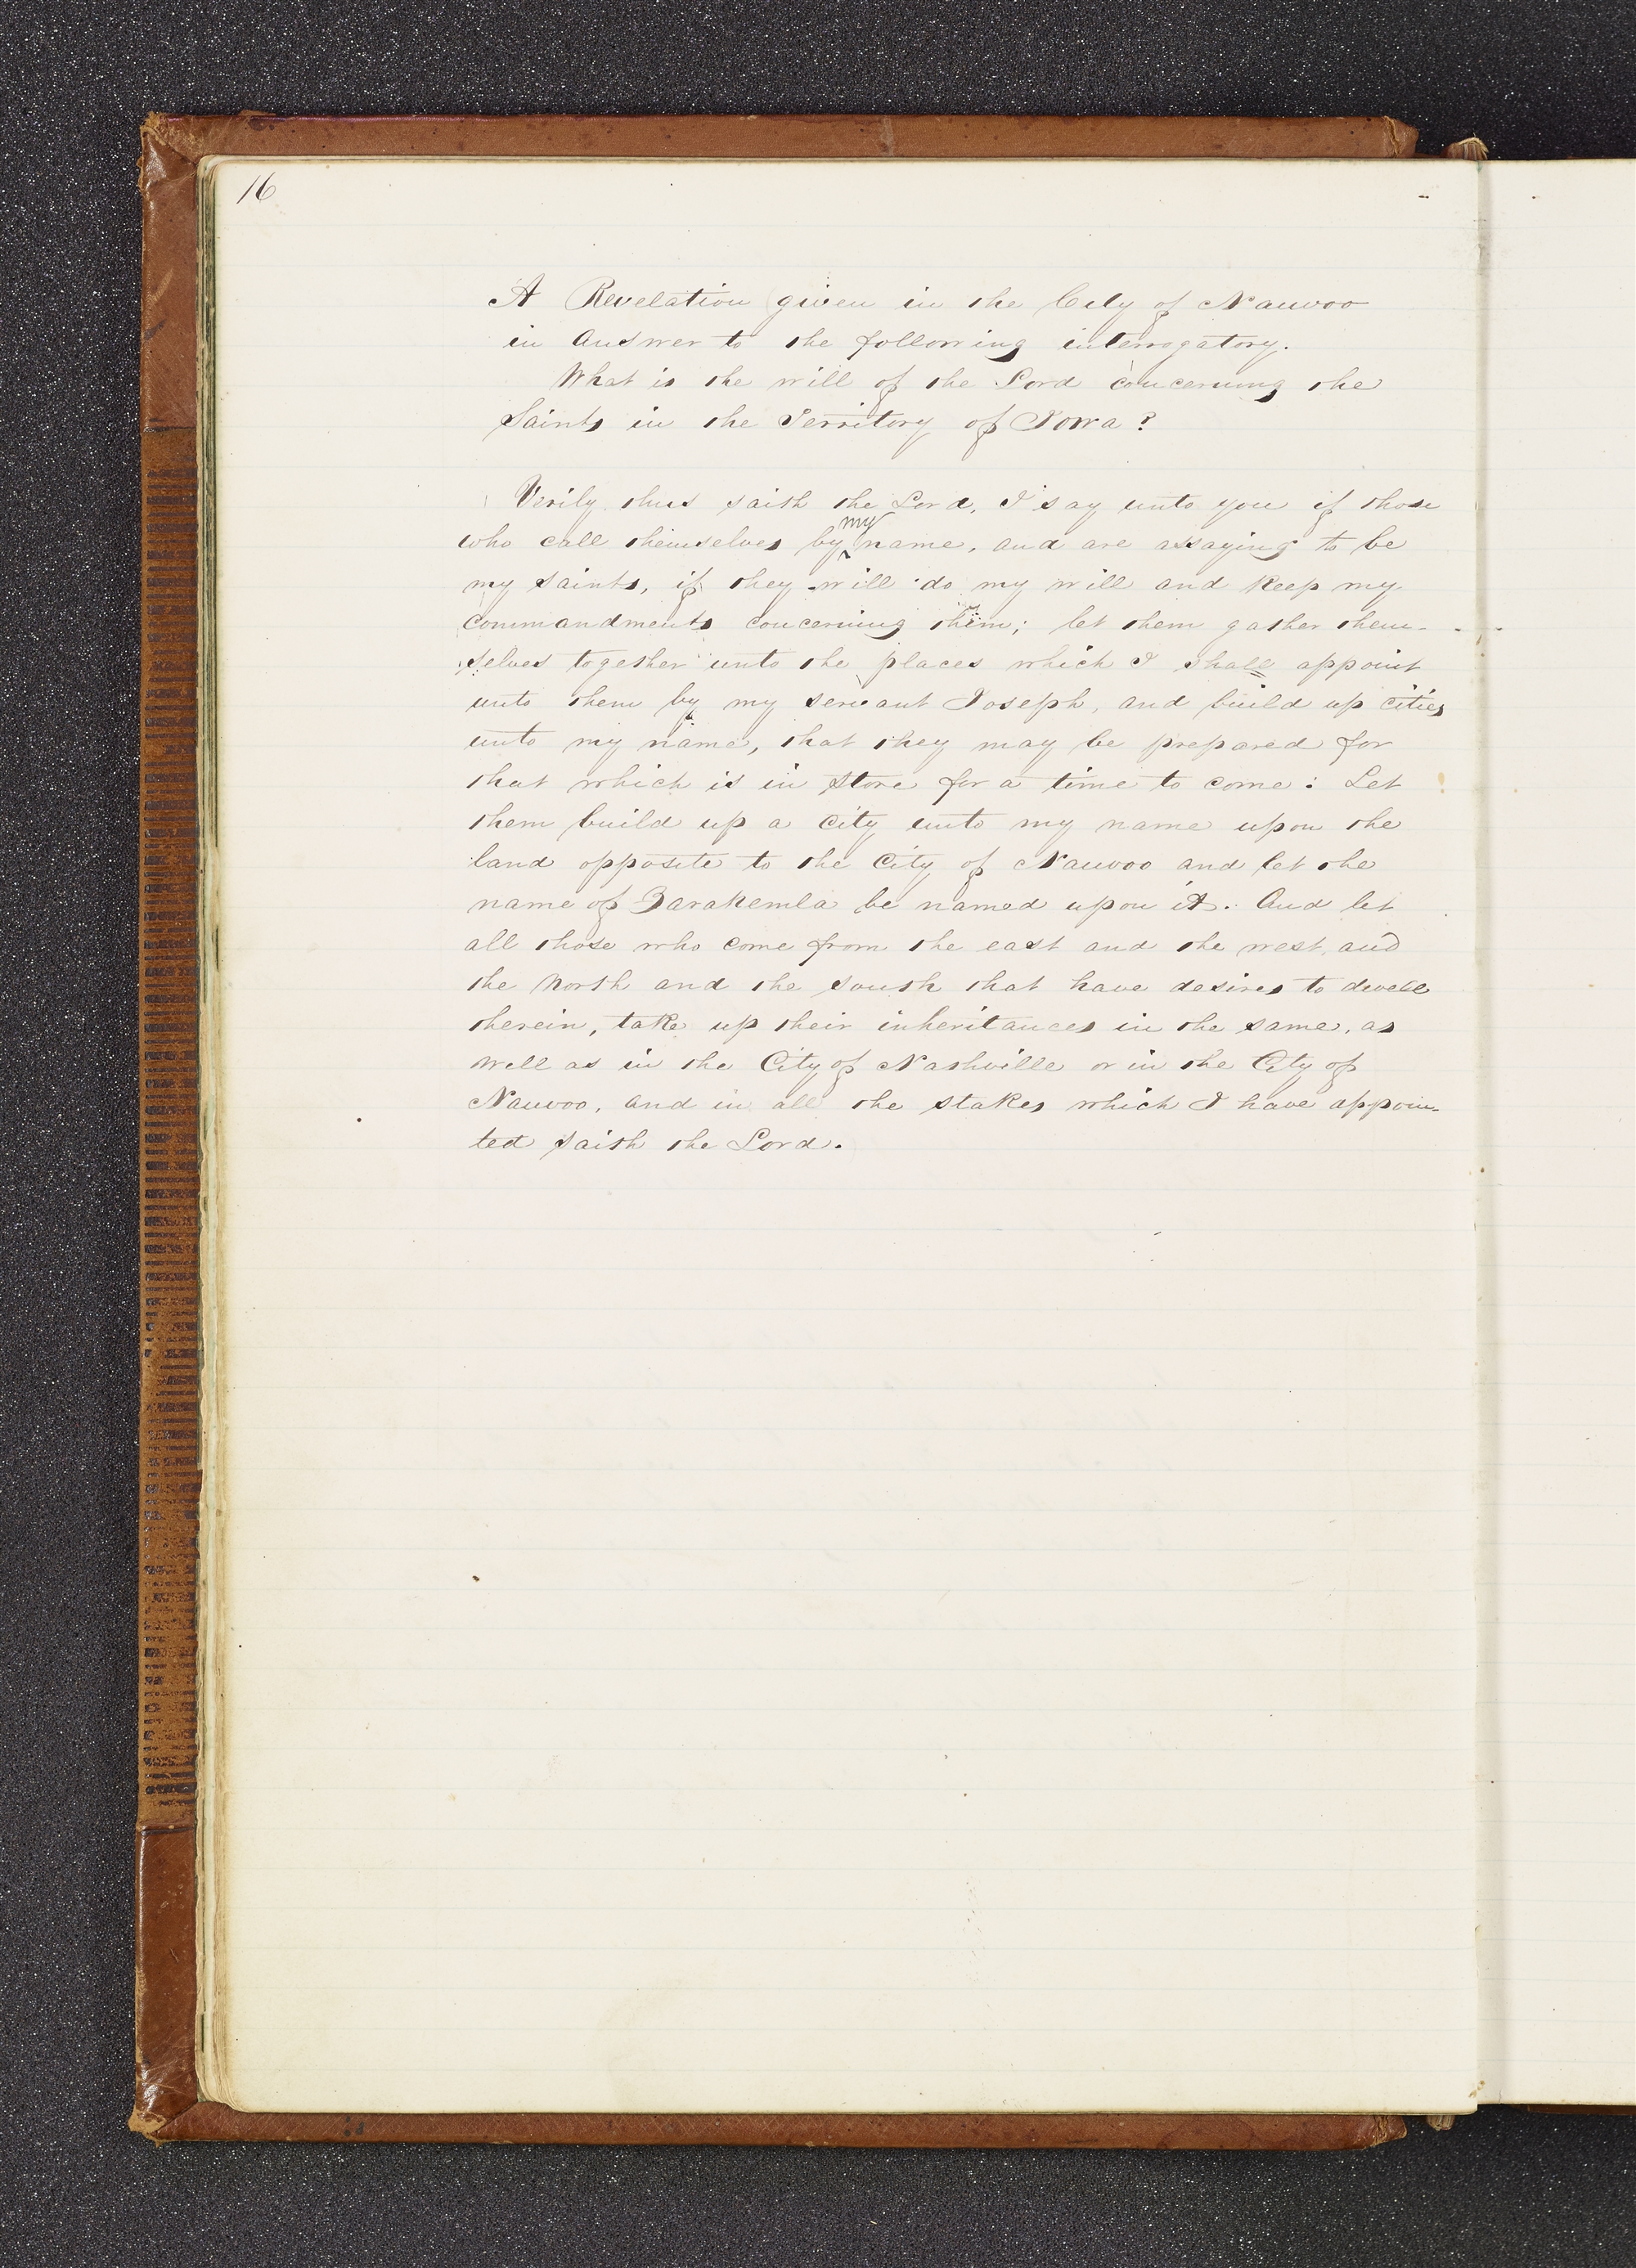 16
A Revelation given in the City of Nauvoo
in Answer to the following interrogatory.
What is the will of the Lord concerning the
Saints in the Territory of Iowa?
Verily thus saith the Lord, I say unto you if those
who call themselves by my name, and are assaying to be
my saints, if they will do my will and keep my
commandments concerning them; let them gather them-
selves together unto the places which I shall appoint
unto them by my servant Joseph, and build up cities
unto my name, that they may be prepared for
that which is in store for a time to come: Let
them build up a city unto my name upon the
land opposite to the City of Nauvoo and let the
name of Zarahemla be named upon it. And let
all those who come from the east and the west and
the North and the south that have desires to dwell
therein, take up their inheritances in the same, as
well as in the City of Nashville or in the City of
Nauvoo, and in all the stakes which I have appoin-
ted saith the Lord.